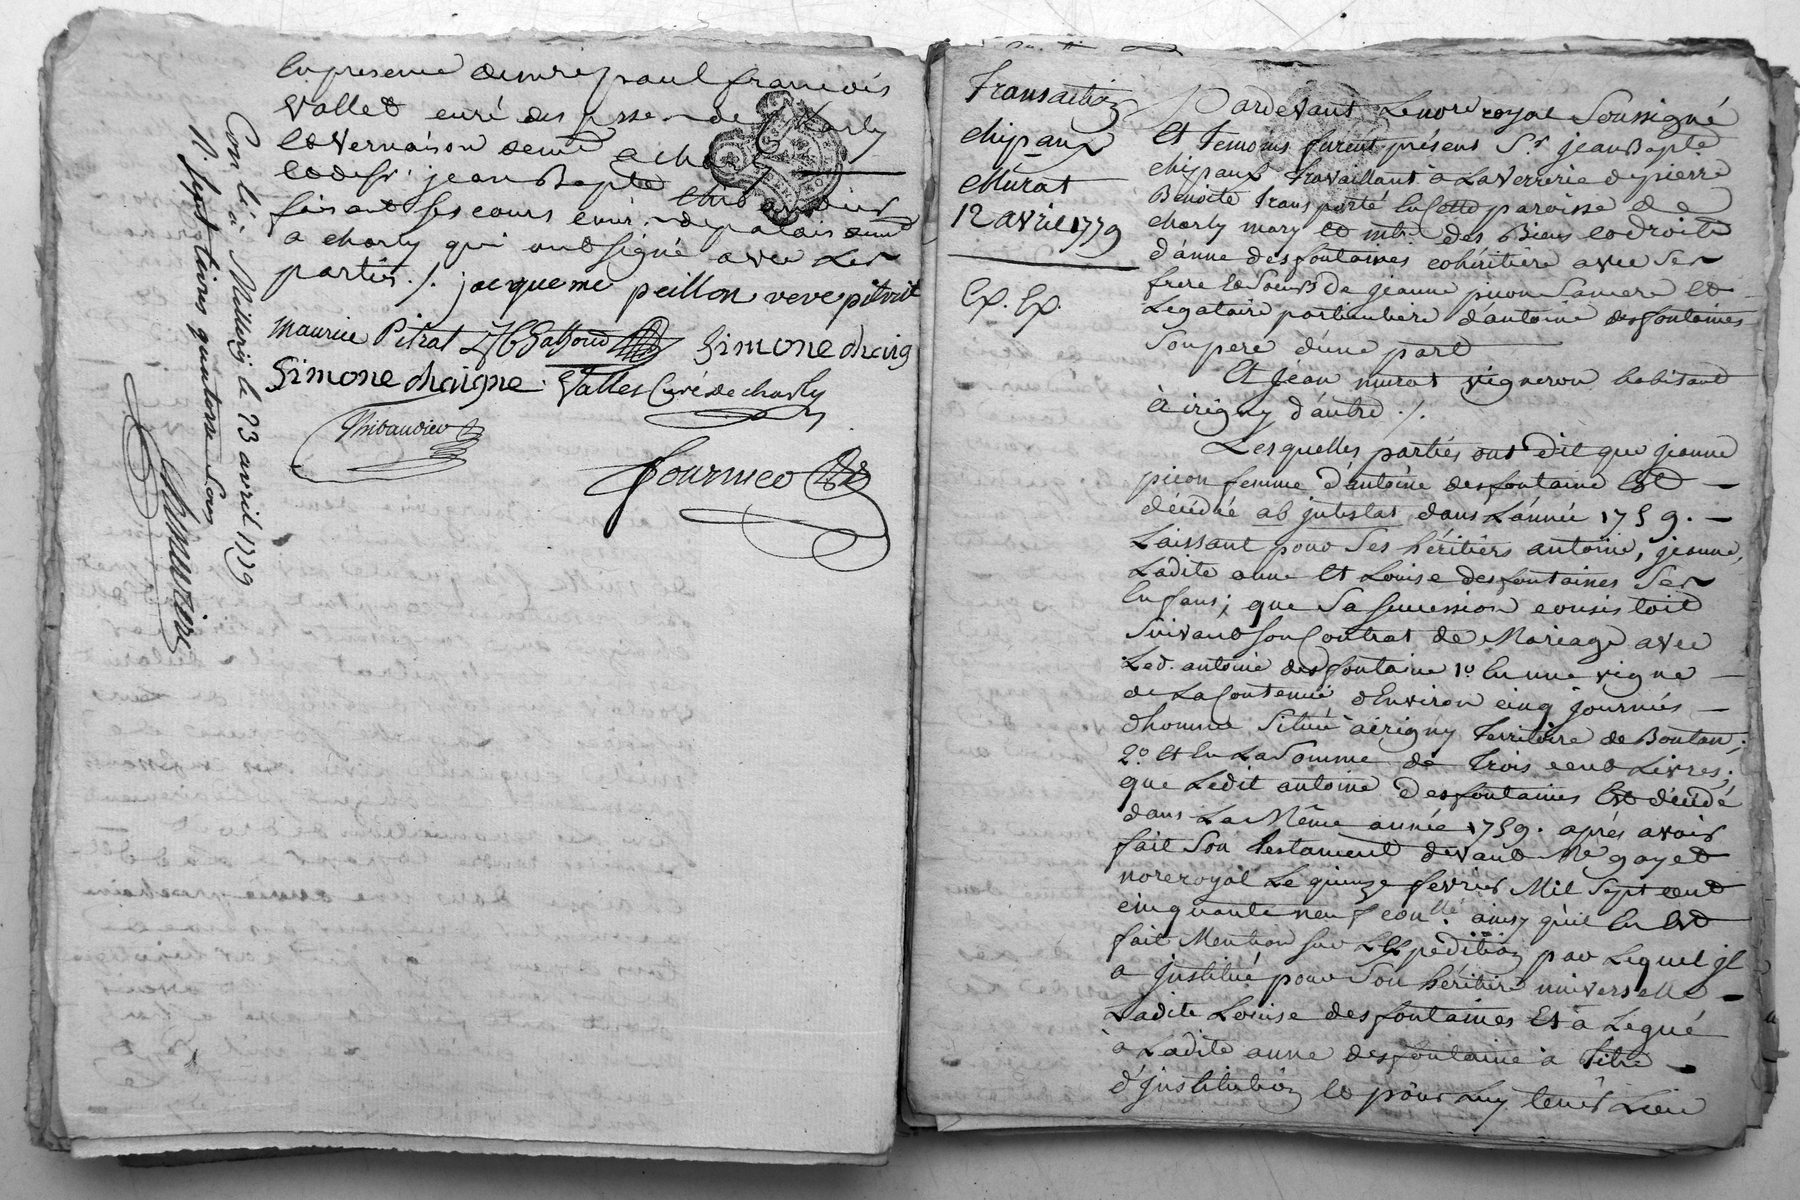 En presence de mre paul francois
Vallet curé des psses de Charly
et Vernaison demt a charly
et de sr. jean Bapte thibaudier
faisant ses cours demt
a charly qui ont signé avec les
parties ./. jacqueme peillon veve pitrat
maurice Pitrat simone chaig
simone chaigne. Vallet Curé de charly
Thibaudier
fournier
Con lé à Millery le 23 avril 1779
R. sept livres quatorze sous
Transaction
chipaux
Murat
12 avril 1779
Ex. Ex.
Pardevant Le nore royal Soussigné
Et temoins furent présens Sr. jean Bapte
chipaux travaillant à La Verrerie de pierre
Benoite transporté En Cette paroisse de
charly mary et mtre. des Biens et droits
d'anne desfontaines cohéritiere avec ses
frere et Soeurs de jeanne picon Sa mere et
Legataire particuliere d'antoine desfontaines
Son pere d'une part
Et jean murat vigneron habitant
à irigny d'autre ./.
Lesquelles parties ont dit que jeanne
picon femme d'antoine desfontaine Est
décédée ab intestat dans L'année 1759.
Laissant pour Ses héritiers antoine, jeanne,
Ladite anne Et Louise desfontaines Ses
Enfans; que Sa Succession consistoit
Suivant son Contrat de Mariage avec
Led. antoine desfontaine 1o En une vigne
de La Contenue d'Environ cinq journées
d'homme Située à irigny Territoire de Boutan;
2o. et En La Somme de trois cent Livres;
que Ledit antoine Desfontaines Est décédé
dans La Même année 1759. après avoir
fait Son testament devant Me gayet
nore royal Le quinze fevrier Mil Sept cent
cinquante neuf conllé. ainsy qu'il En Est
fait Mention sur L'Expédition par Lequel jl
a jnstitué pour Son héritiere universelle
Ladite Louise desfontaines Et a Legué
à Ladite anne desfontaine à titre
d'jnstitution et pour Luy tenir Lieu